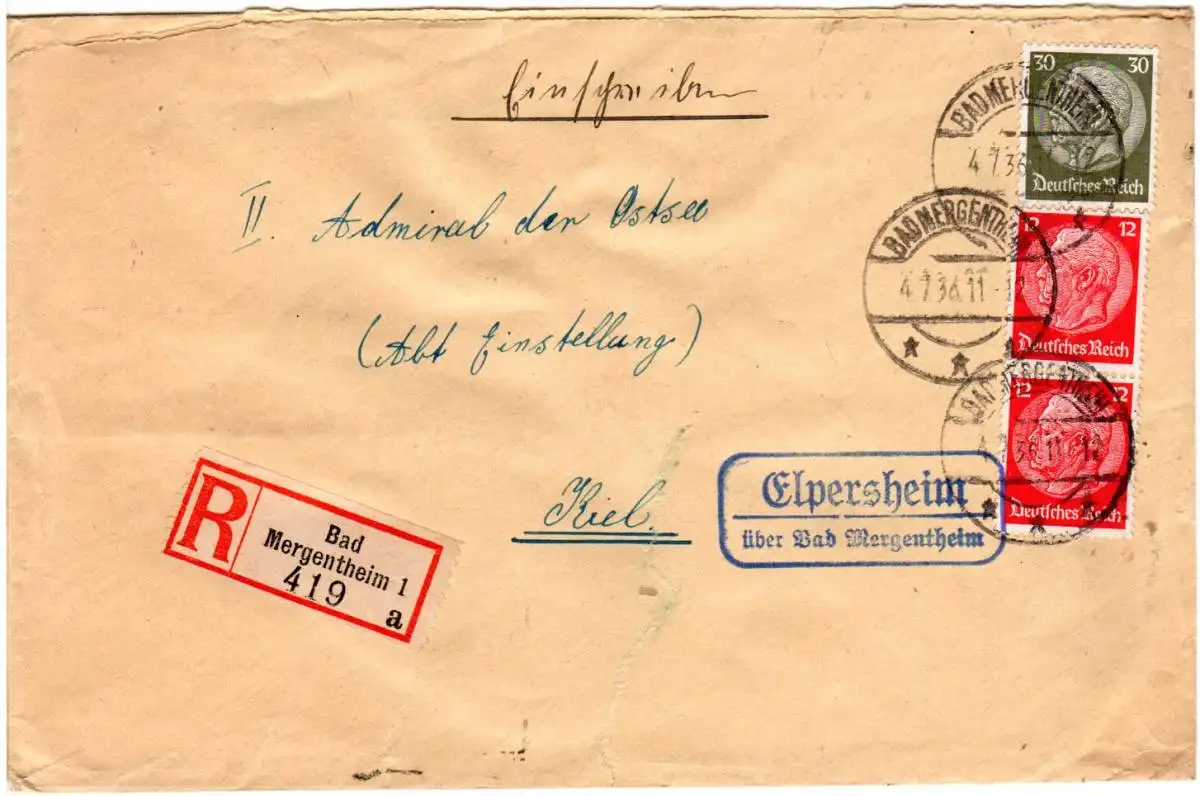 Einschreiben
II Admiral der Ostsee
(Abt Einstellung)
Kiel.
30 30
Deutsches Reich
12 12
Deutsches Reich
12 12
Deutsches Reich
BAD MERGENTHEIM
4.7.36.11-12
BAD MERGENTHEIM
4.7.36.11-12
BAD MERGENTHEIM
4.7.36.11-12
Elpersheim
über Bad Mergentheim
R
Bad
Mergentheim 1
419
a